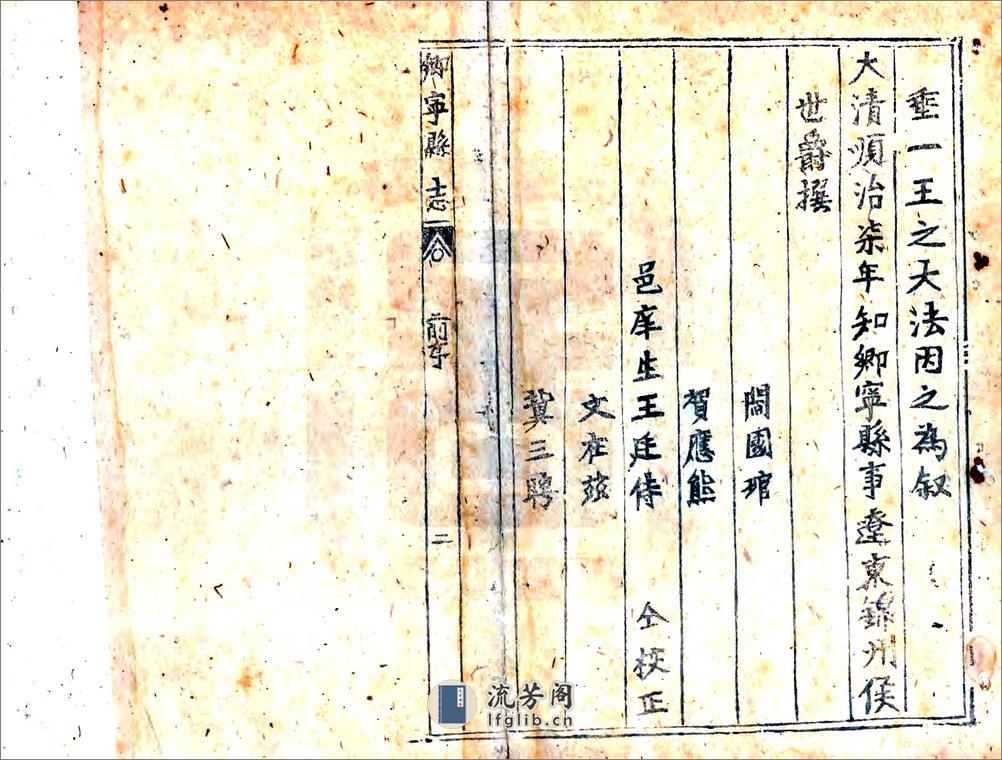 垂一王之大法因之為叙
大清順治柒年知鄉寧縣事遼東錦州侯
世爵撰
閻國琯
賀應熊
邑庠生王廷侍 仝校正
文在茲
龔三聘
鄉寧縣志 前序 二
流芳阁
lfglib.cn